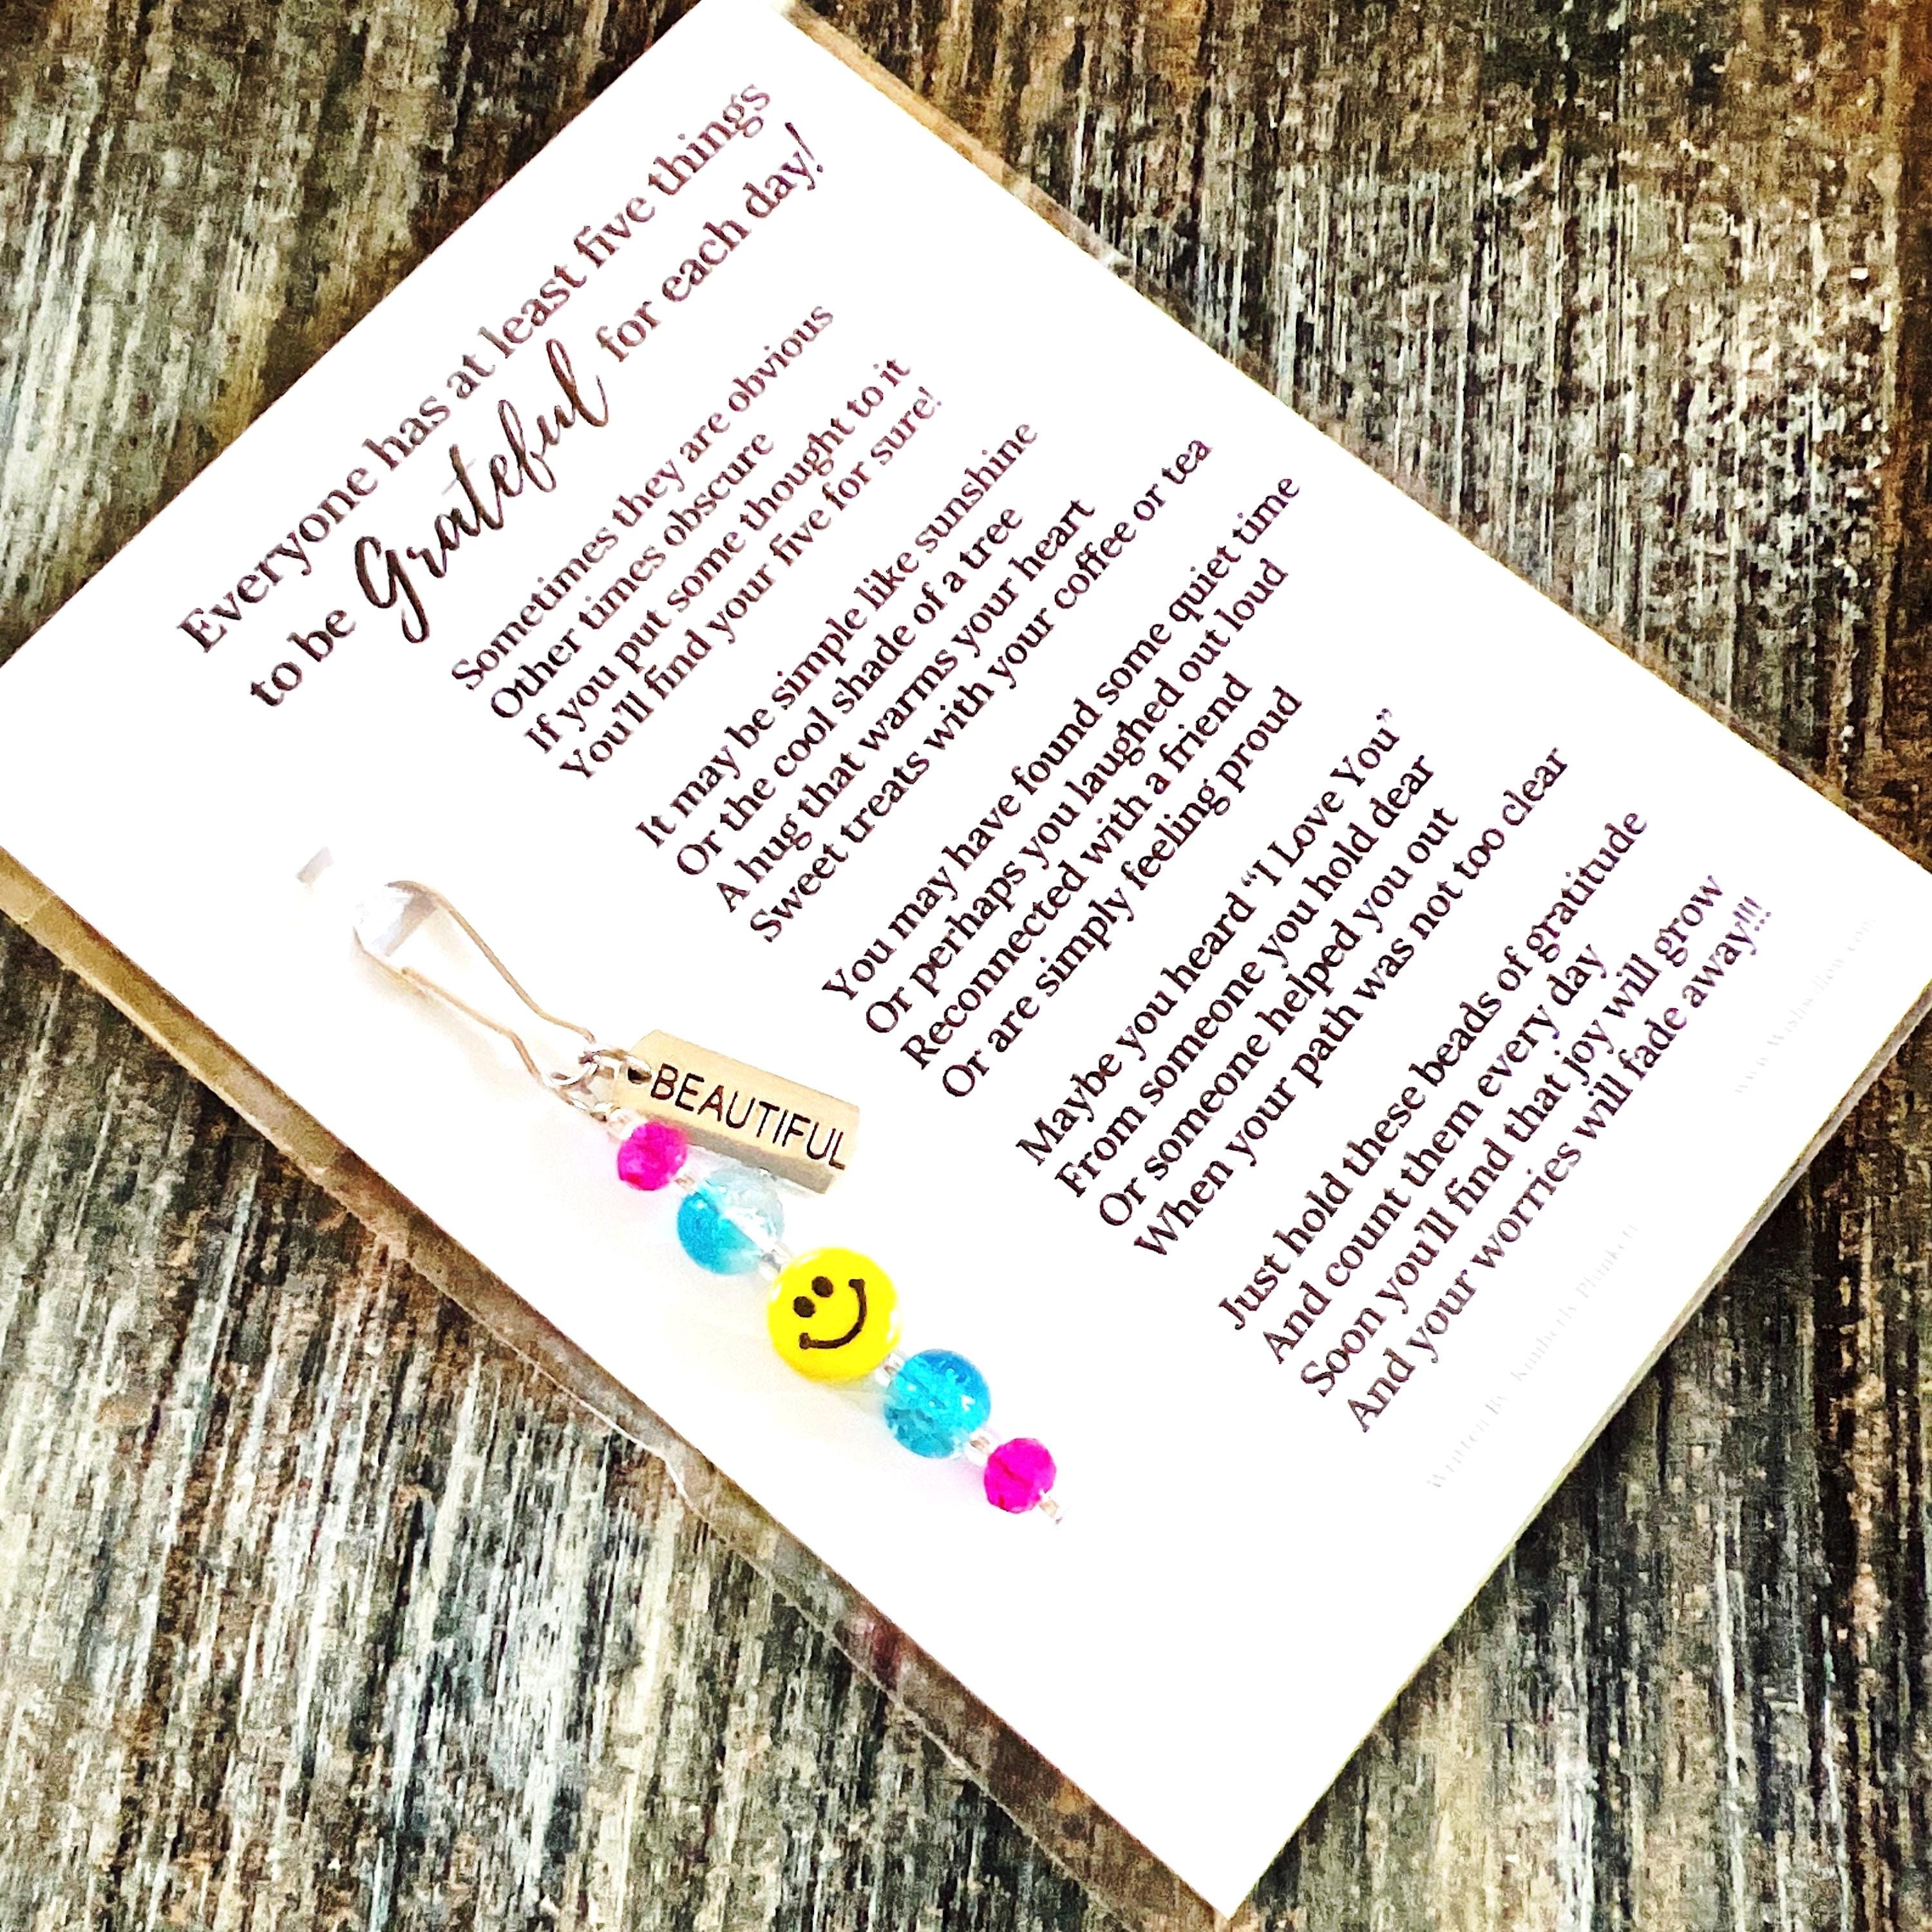 Everyone has at least five things
to be Grateful for each day!
Sometimes they are obvious
Other times obscure
If you put some thought to it
You'll find your five for sure!
It may be simple like sunshine
Or the cool shade of a tree
A hug that warms your heart
Sweet treats with your coffee or tea
You may have found some quiet time
Or perhaps you laughed out loud
Reconnected with a friend
Or are simply feeling proud
Maybe you heard “I Love You”
From someone you hold dear
Or someone helped you out
When your path was not too clear
Just hold these beads of gratitude
And count them every day
Soon you'll find that joy will grow
And your worries will fade away!!!
Written By Kimberly
BEAUTIFUL